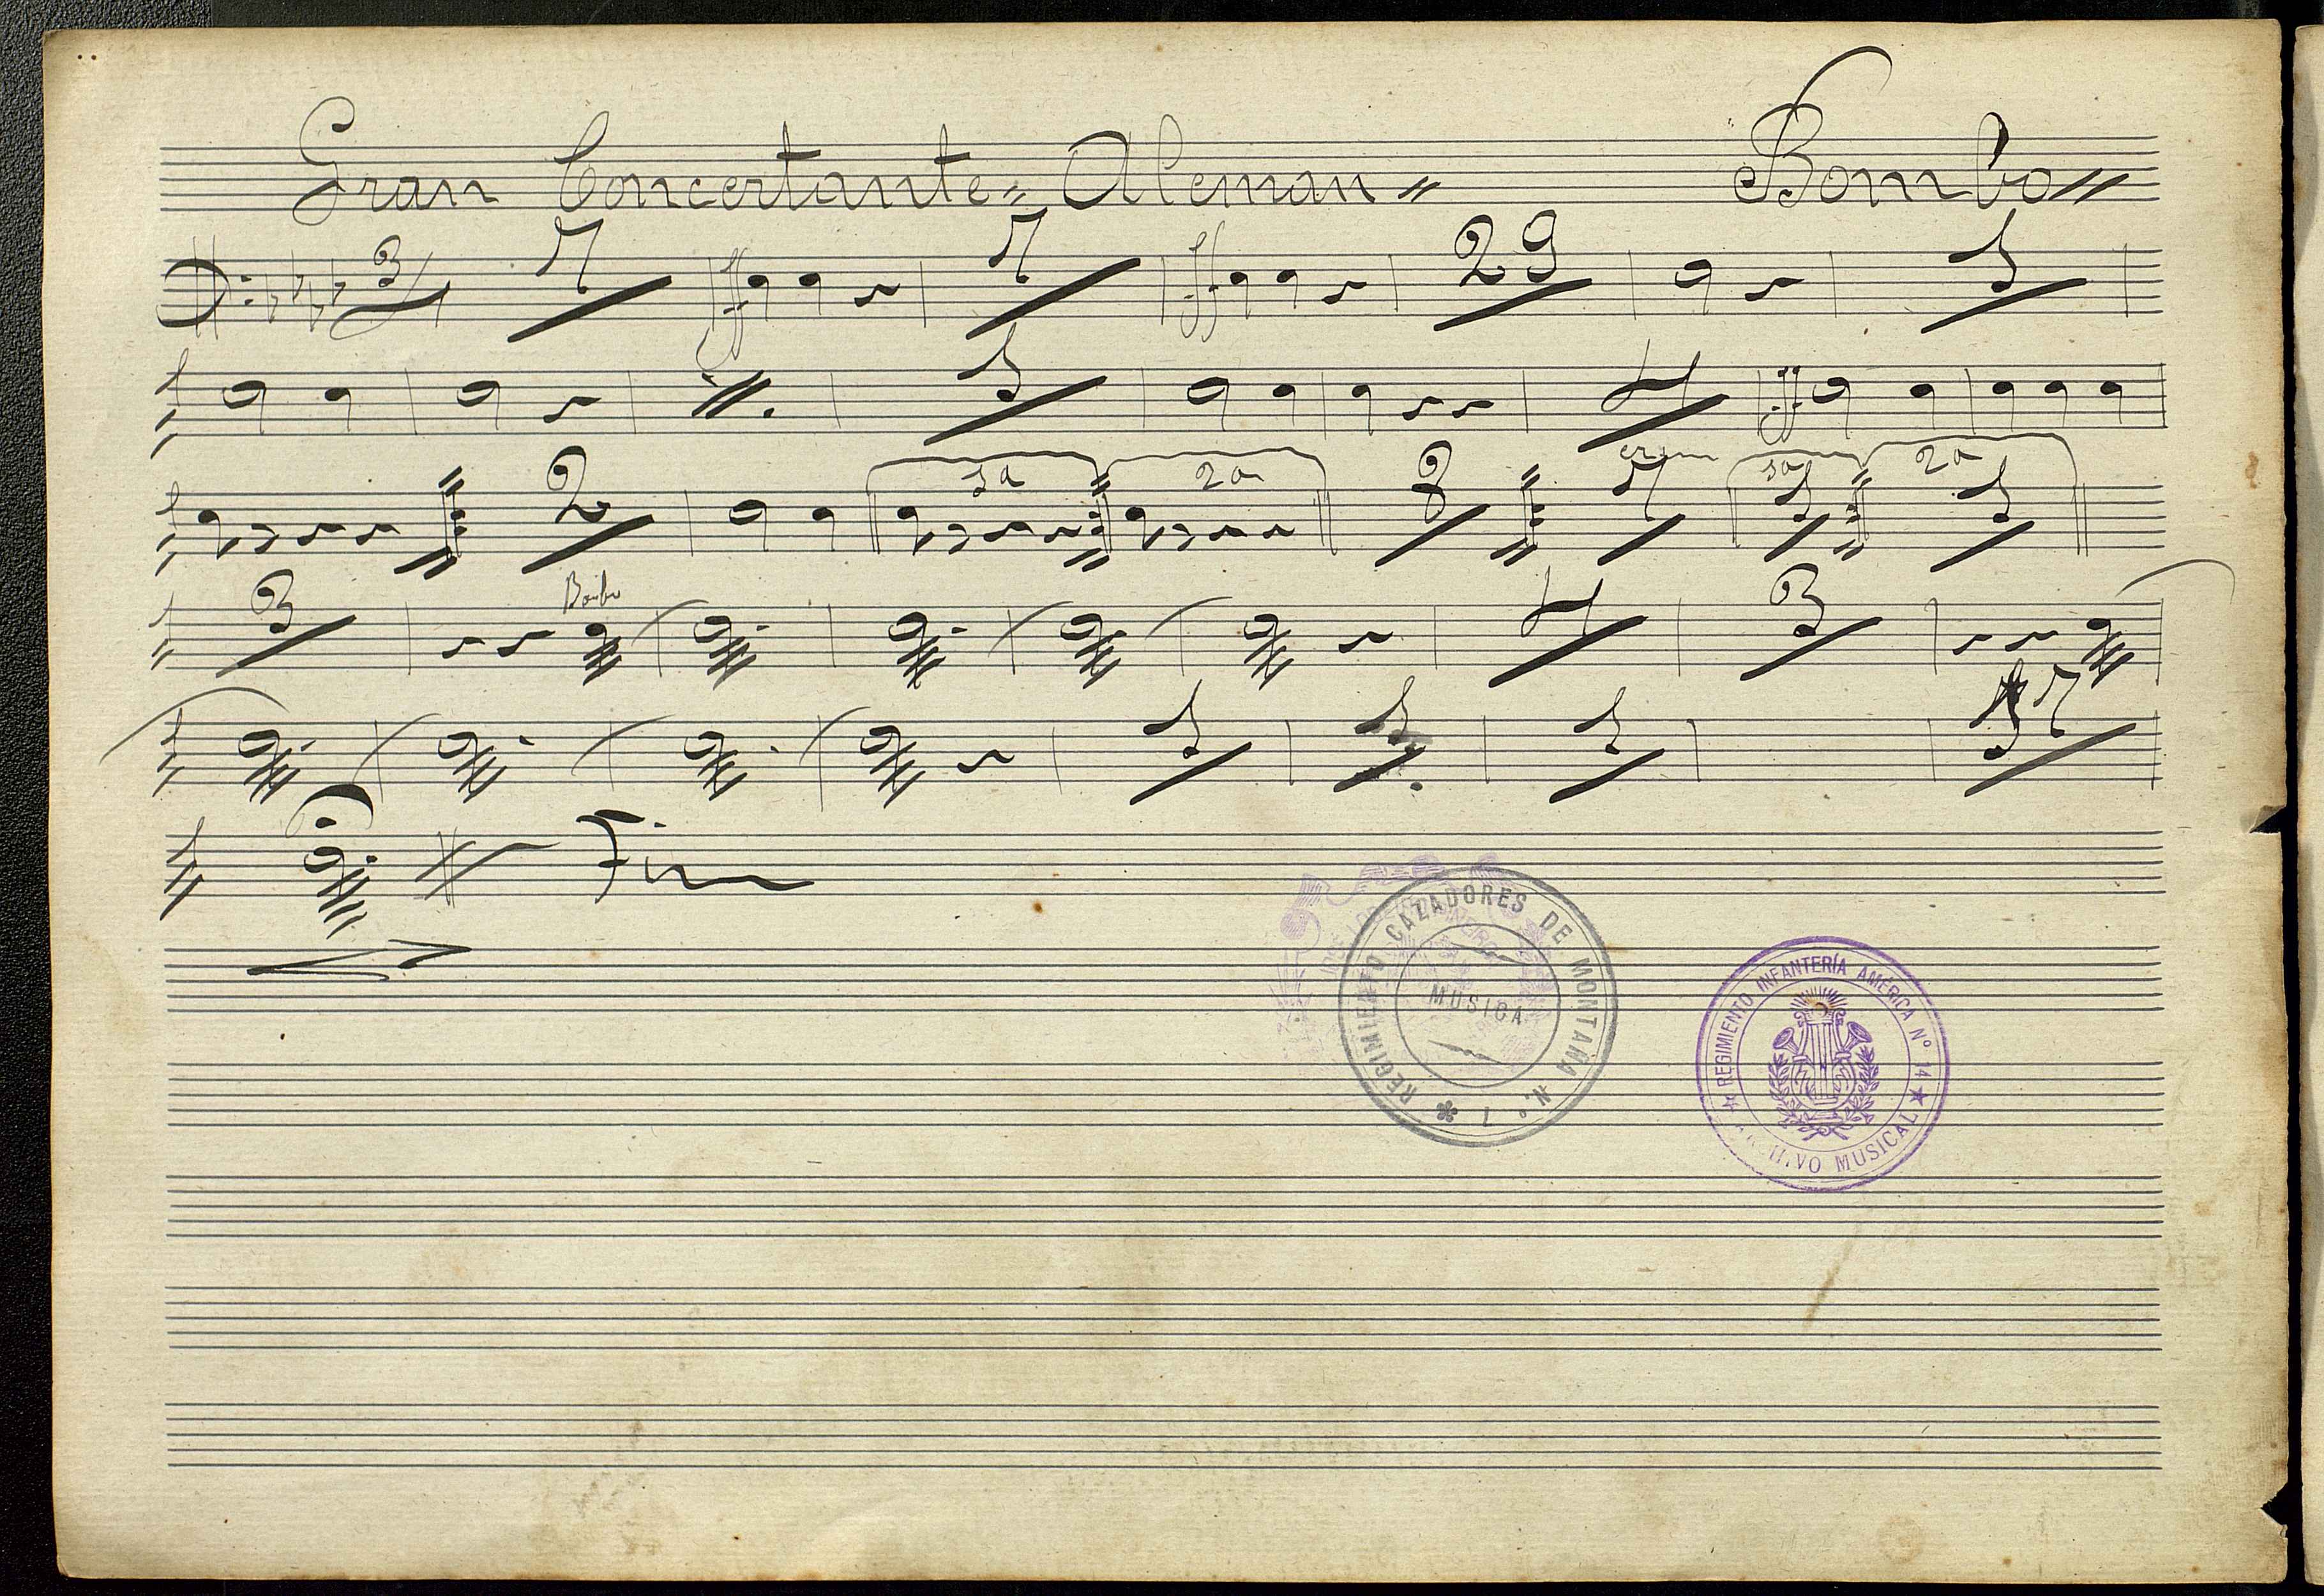 Gran Concertante = Aleman = Bombo =
3/4 7 ff 7 ff 29 1
1 4 ff
2 1a 2a 8 7 1a 1 2a 1
3 4 3
1 1 1 17
Fin
REGIMIENTO CAZADORES DE MONTAÑA N.º 7
MUSICA
REGIMIENTO INFANTERÍA AMERICA Nº 14
ARCHIVO MUSICAL